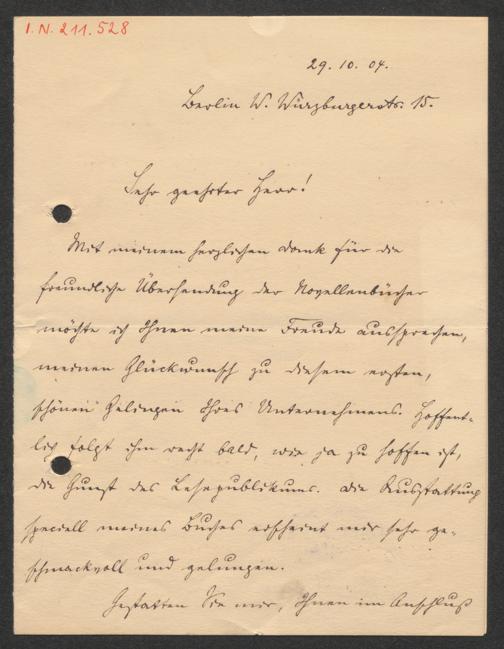 I.N. 211.528
29. 10. 04.
Berlin W. Würzburgerstr. 15.
Sehr geehrter Herr!
Mit meinem herzlichen Dank für die
freundliche Übersendung der Novellenbücher
möchte ich Ihnen meine Freude aussprechen,
meinen Glückwunsch zu diesem ersten,
schönen Gelingen Ihres Unternehmens. Hoffent-
lich folgt ihm recht bald, wie ja zu hoffen ist,
die Gunst des Lesepublikums. Die Ausstattung
speciell meines Buches erscheint mir sehr ge-
schmackvoll und gelungen.
Gestatten Sie mir, Ihnen im Anschluß